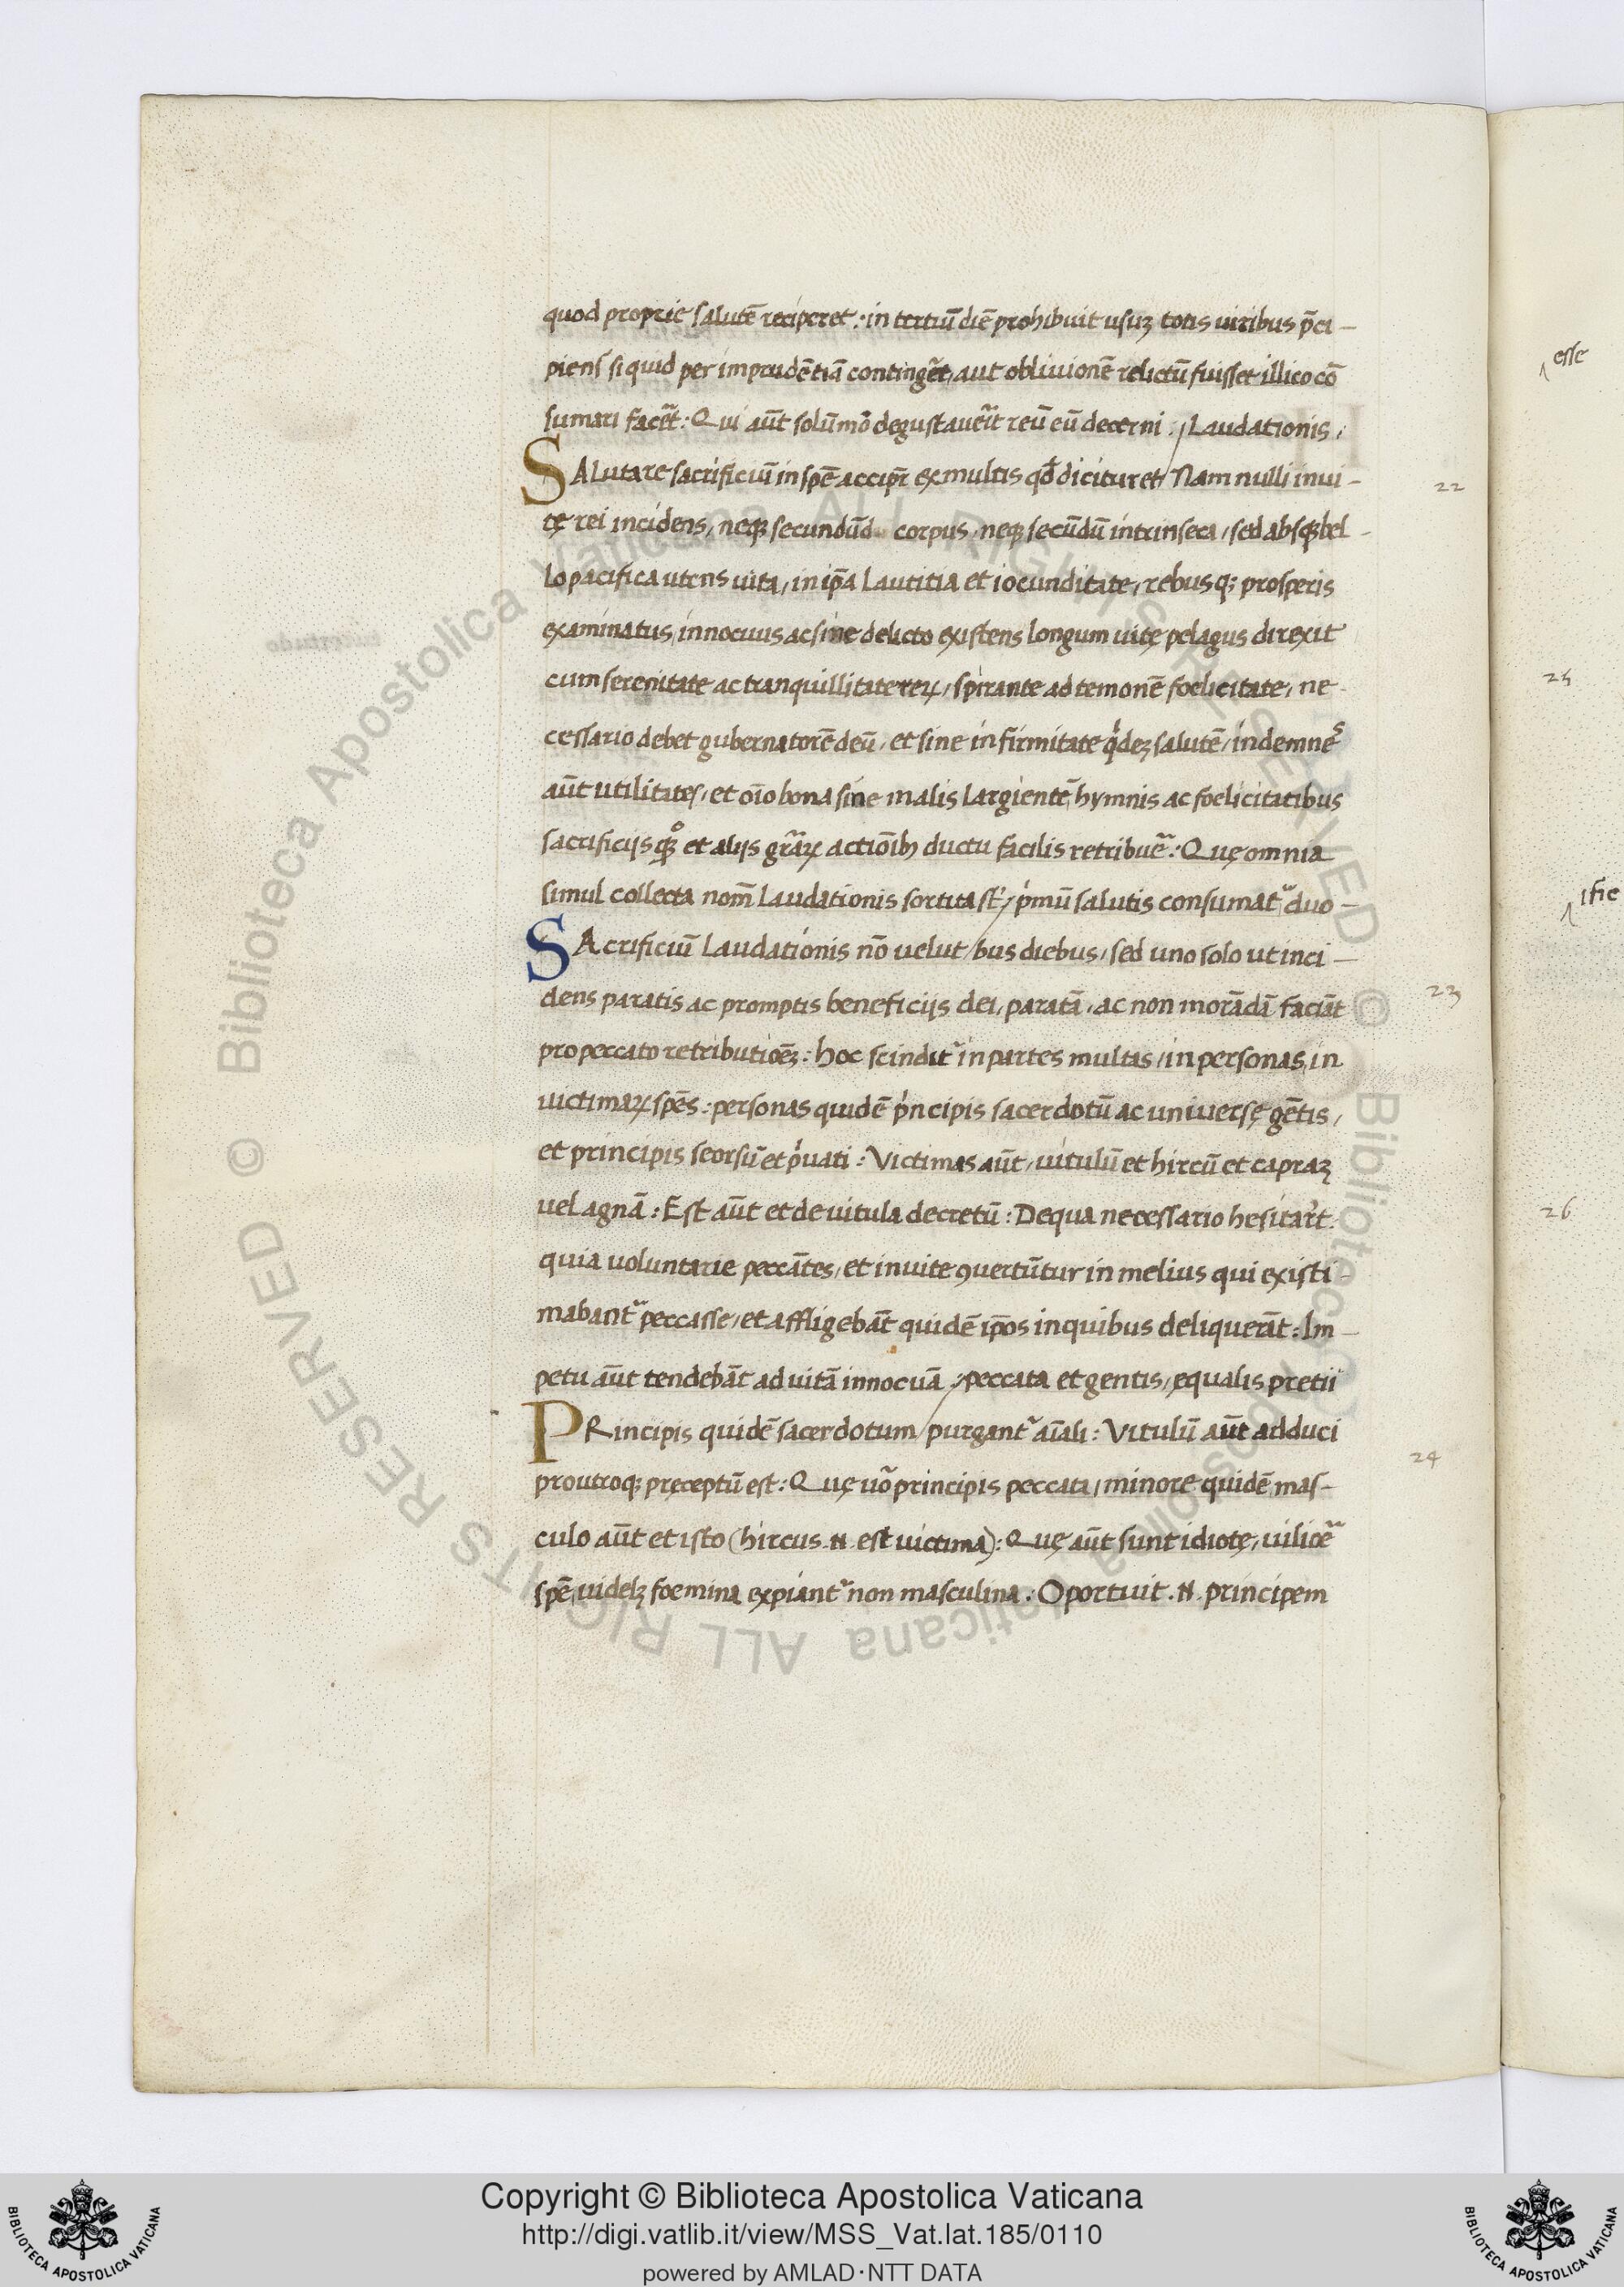 quod proprie salutē reciperet: in tertiū diē prohibuit usuȝ totis uiribus p̄ci-
piens si quid per imprudētiā conting̃et, aut obliuionē relictū fuisset illico cō
sumari fac̃et: Qui aūt solūmō degustaũerit reū eū decerni. / Laudationis,
SALutare sacrificiū in spē accipr̃ ex multis qđ dicitur et / Nam nulli inui-
tę rei incidens, neqȝ secundūd corpus, neqȝ secūdū intrinseca, sed absqȝ bel-
lo pacifica utens uita, in ip̄a Lautitia et iocunditate, rebus qȝ prosperis
examinatus, innocuus ac sine delicto existens longum uitę pelagus direxit
cum serenitate ac tranquillitate reꝝ, spirante ad temonē foelicitate, ne-
cessario debet gubernatorē deū, et sine infirmitate qͥdeȝ salutē, indemnes
aūt utilitates, et oīo bona sine malis Largientē, hymnis ac foelicitatibus
sacrificijs qȝ et alijs gr̄aꝝ actiōibȝ ductu facilis retribuẽ: Quę omnia
simul collecta nom̄ Laudationis sortita st̄, / pͥmū salutis consumat᷑ duo-
SAcrificiū Laudationis nō uelut / bus diebus, sed uno solo ut inci-
dens paratis ac promptis beneficijs dei, paratā, ac non morādā faciāt
pro peccato retributiōeȝ: hoc scindit᷑ in partes multas, in personas, in
uictimaꝝ spēs: personas quidē pͥncipis sacerdotū ac uniuersę gētis,
et principis seorsū et pͥuati: Victimas aūt, uitulū et hircū et capraȝ
uel agnā: Est aūt et de uitula decretū: De qua necessario hesitar̃t.
quia uoluntarie peccātes, et inuite ꝯuertūtur in melius qui existi-
mabant᷑ peccasse, et affligebāt quidē ip̄os in quibus deliquerāt: Im-
petu aūt tendebāt ad uitā innocuā / peccata et gentis, equalis pretii
PRincipis quidē sacerdotum / purgant᷑ aīali: Vitulū aūt adduci
pro utroqȝ pręceptū est: Quę uō principis peccata, minore quidē mas-
culo aūt et isto (hircus .n. est uictima): Quę aūt sunt idiotę, uiliorẽ
spē, uidelȝ foemina expiant᷑ non masculina. Oportuit .n. principem
22
23
24
esse
25
ifie
26
© Biblioteca Apostolica Vaticana ALL RIGHTS RESERVED © Biblioteca Apostolica Vaticana ALL RIGHTS RESERVED
Copyright © Biblioteca Apostolica Vaticana
http://digi.vatlib.it/view/MSS_Vat.lat.185/0110
powered by AMLAD·NTT DATA
BIBLIOTECA APOSTOLICA VATICANA
BIBLIOTECA APOSTOLICA VATICANA